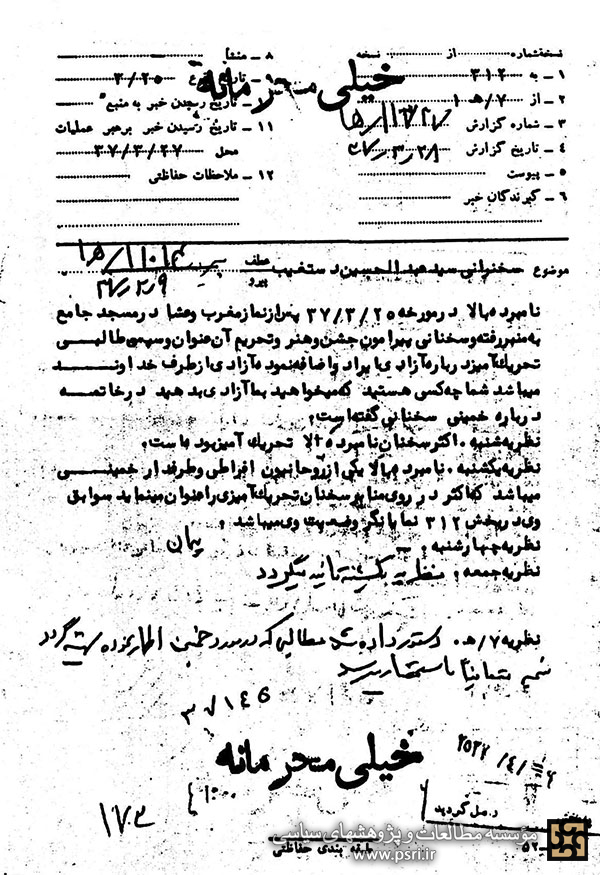 نسخه‌شماره از نسخه
۱ - به ۳۱۲
۲ - از ۷/ه ۱
۳ - شماره گزارش
۴ - تاریخ گزارش
۵ - پیوست
۶ - گیرندگان خبر
۸ - منشأ
۹ - تاریخ وقوع ۳/۲۵
۱۰ - تاریخ رسیدن خبر به منبع
۱۱ - تاریخ رسیدن خبر برهبر عملیات
محل ۳۷/۳/۲۷
۱۲ - ملاحظات حفاظتی
خیلی محرمانه
موضوع سخنرانی سید عبدالحسین دستغیب عطف پیرو
نامبرده بالا در مورخه ۳۷/۳/۲۵ پس از نماز مغرب و عشا در مسجد جامع
به منبر رفته و سخنانی پیرامون جشن و هنر و تحریم آن عنوان و سپس مطالبی
تحریک آمیز درباره آزادی ایراد و اضافه نموده آزادی از طرف خداوند
میباشد شما چه کسی هستید که میخواهید بما آزادی بدهید در خاتمه
درباره خمینی سخنانی گفته است.
نظریه شنبه . اکثر سخنان نامبرده بالا تحریک آمیز بوده است.
نظریه یکشنبه . نامبرده بالا یکی از روحانیون افراطی و طرفدار خمینی
میباشد که اکثر در روی منابر سخنان تحریک آمیزی را عنوان مینماید سوابق
وی در بخش ۳۱۲ نمایانگر وضعیت وی میباشد .
نظریه چهارشنبه . پیمان
نظریه جمعه . نظریه یکشنبه تائید میگردد
نظریه ۷/ه . دستور داده شد مطالبی که در مورد خمینی اظهار نموده تهیه گردد
ضمیمه متعاقباً باستحضار میرسد
۳۷۱۴۵
خیلی محرمانه
۲۵۳۷/۴/
در محل گردید
۱۷۳
طبقه بندی حفاظتی
۵۲
مؤسسه مطالعات و پژوهشهای سیاسی
www.psri.ir